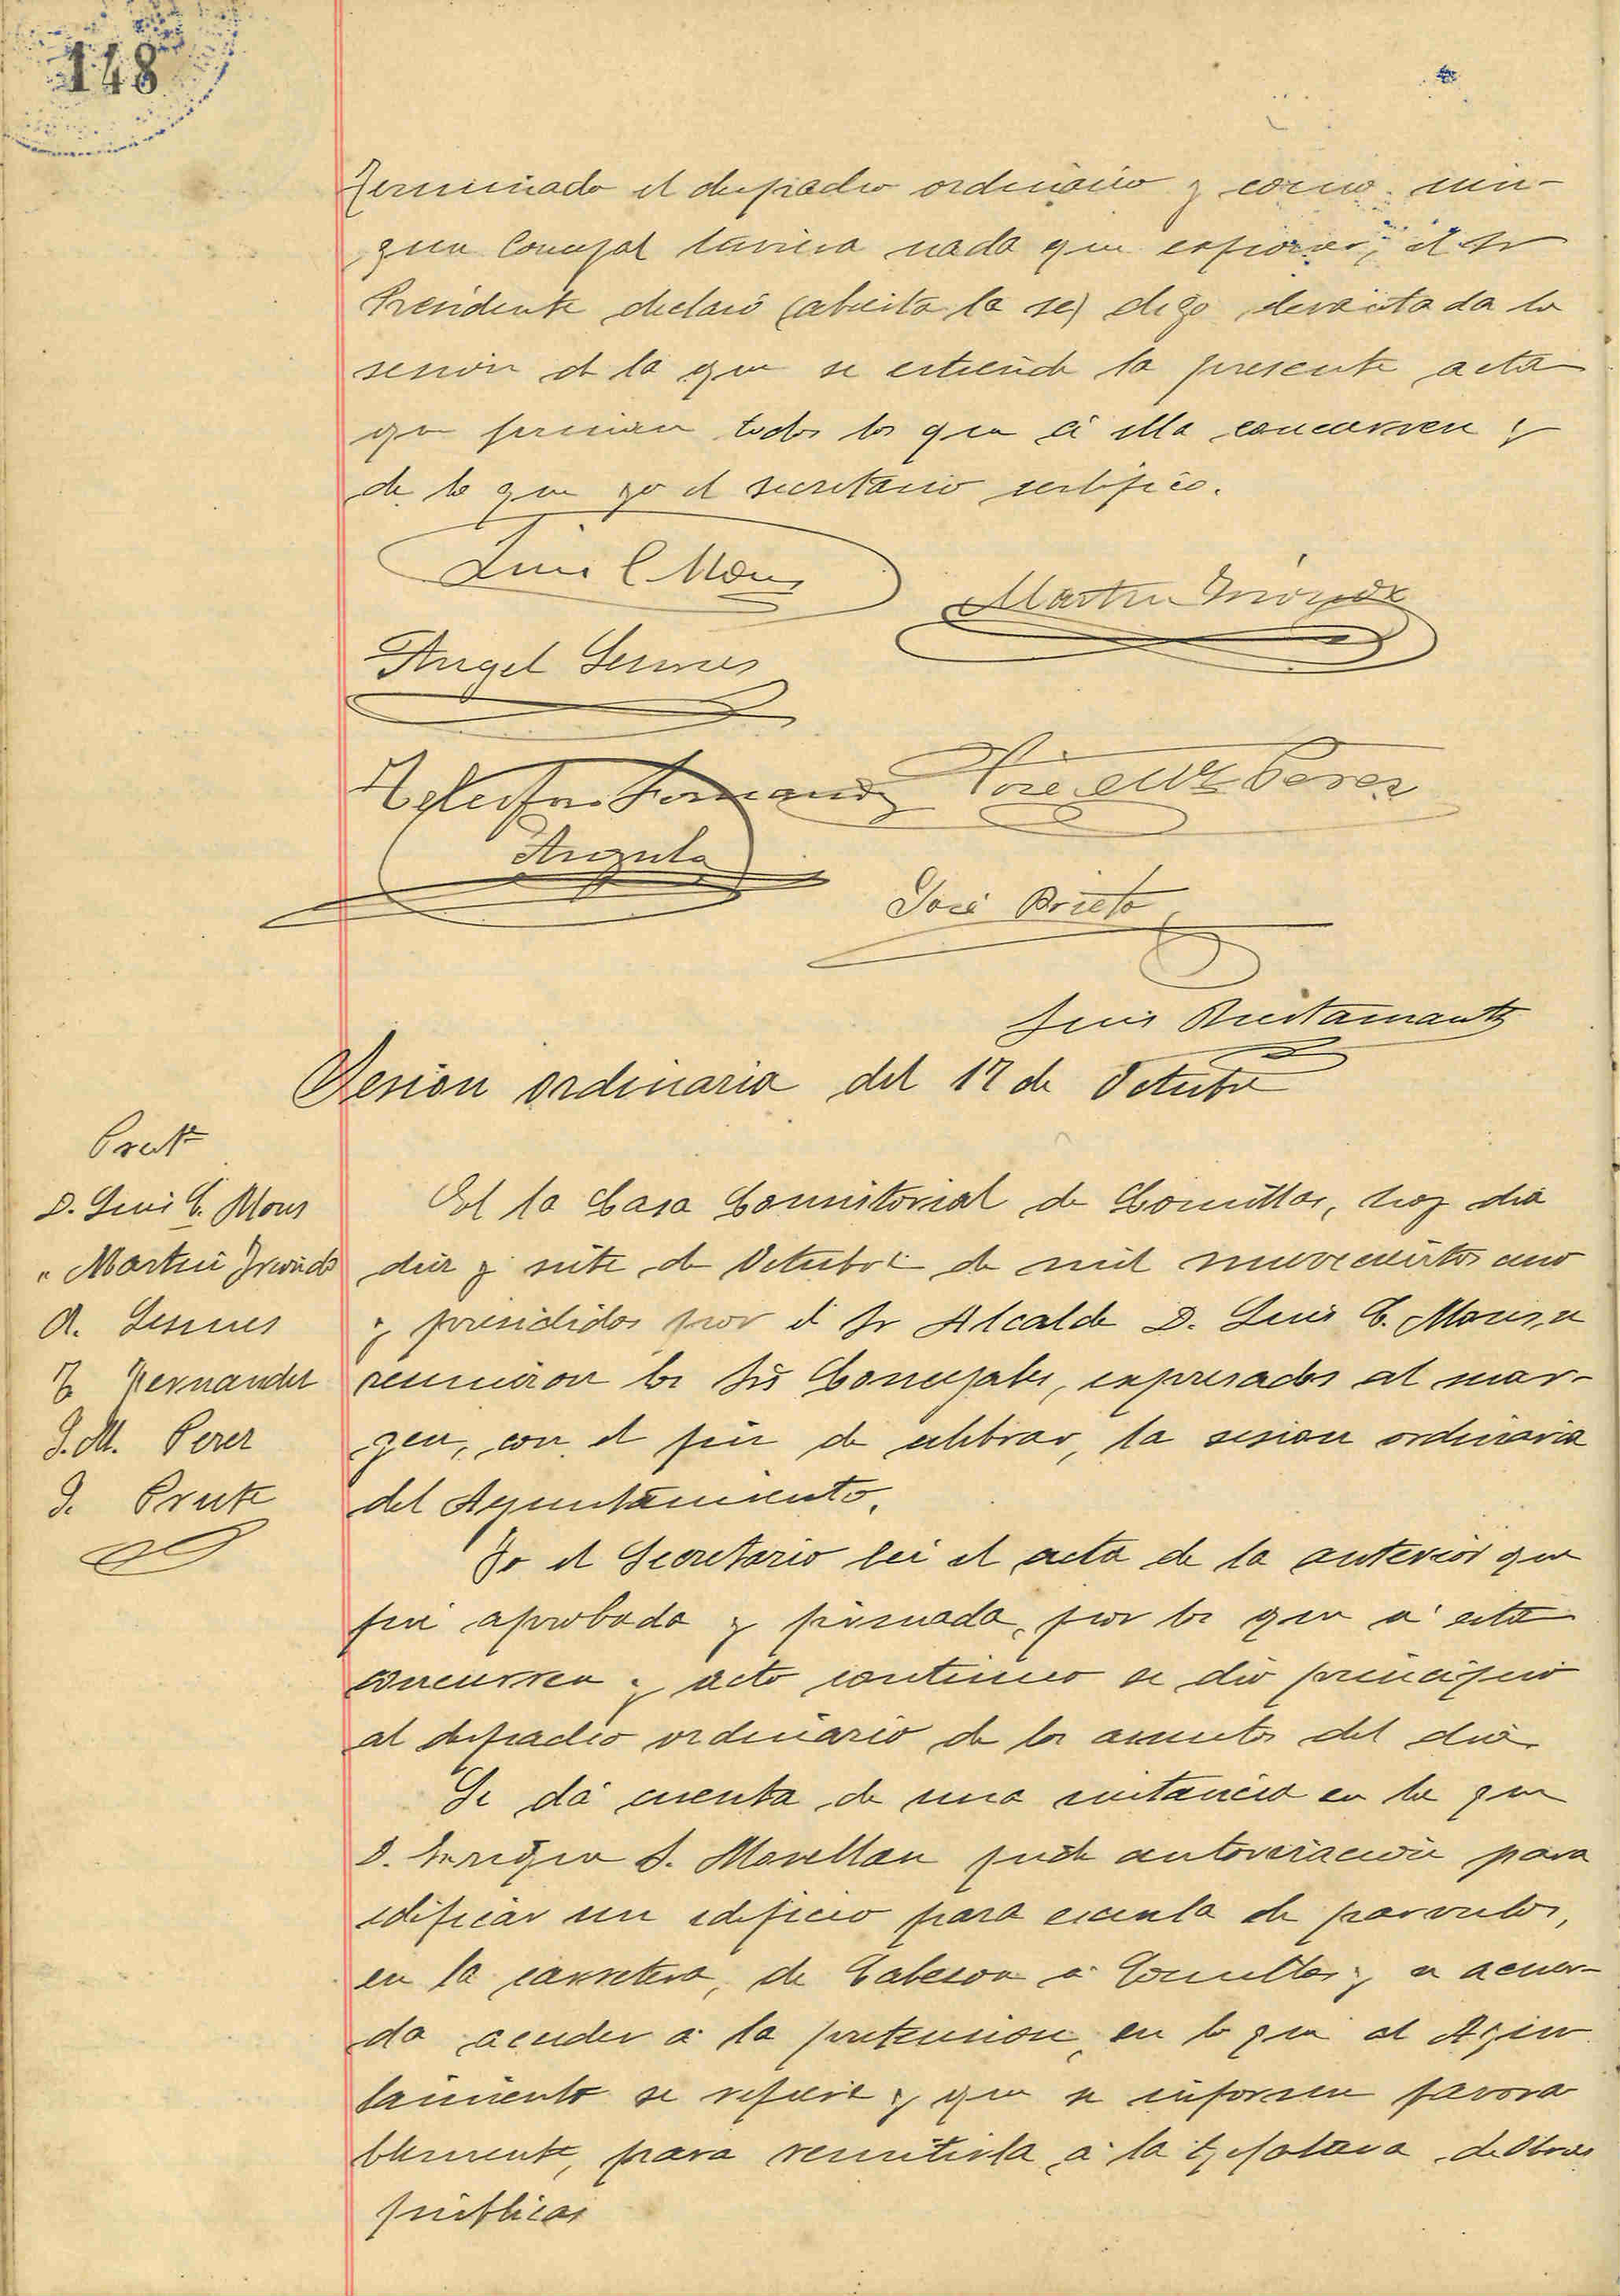 148
Terminado el despacho ordinario y como nin-
gun Concejal tuviera nada que exponer, el Sr
Presidente declaró (abierta la se) digo levantada la
sesion de la que se estiende la presente acta
que firman todos los que á ella concurren y
de lo que yo el secretario certifico.
Luis C Mons
Martin
Angel Lesmes
Telesforo Fernandez
José Mª Perez
Angulo
José Prieto
Luis Bustamante
Sesion ordinaria del 17 de Octubre
D. Luis C. Mons
" Martin
A. Lesmes
T Fernandez
J. M. Perez
J. Prieto
En la Casa Consistorial de Comillas, hoy dia
diez y siete de Octubre de mil novecientos uno
y presididos por el Sr Alcalde D. Luis C. Mons, se
reunieron los Srs Concejales, expresados al mar-
gen, con el fin de celebrar, la sesion ordinaria
del Ayuntamiento.
Yo el Secretario leí el acta de la anterior que
fué aprobada y firmada, por los que á esta
concurren y acto continuo se dio principio
al despacho ordinario de los asuntos del dia.
Se dá cuenta de una instancia en la que
D. Enrique S. Movellan pide autorizacion para
edificar un edificio para escuela de parvulos,
en la carretera, de Cabezon á Comillas y se acuer-
da acceder á la pretension, en lo que al Ayun
tamiento se refiere y que se informe favora
blemente, para remitirla á la Gefatura de Obras
públicas